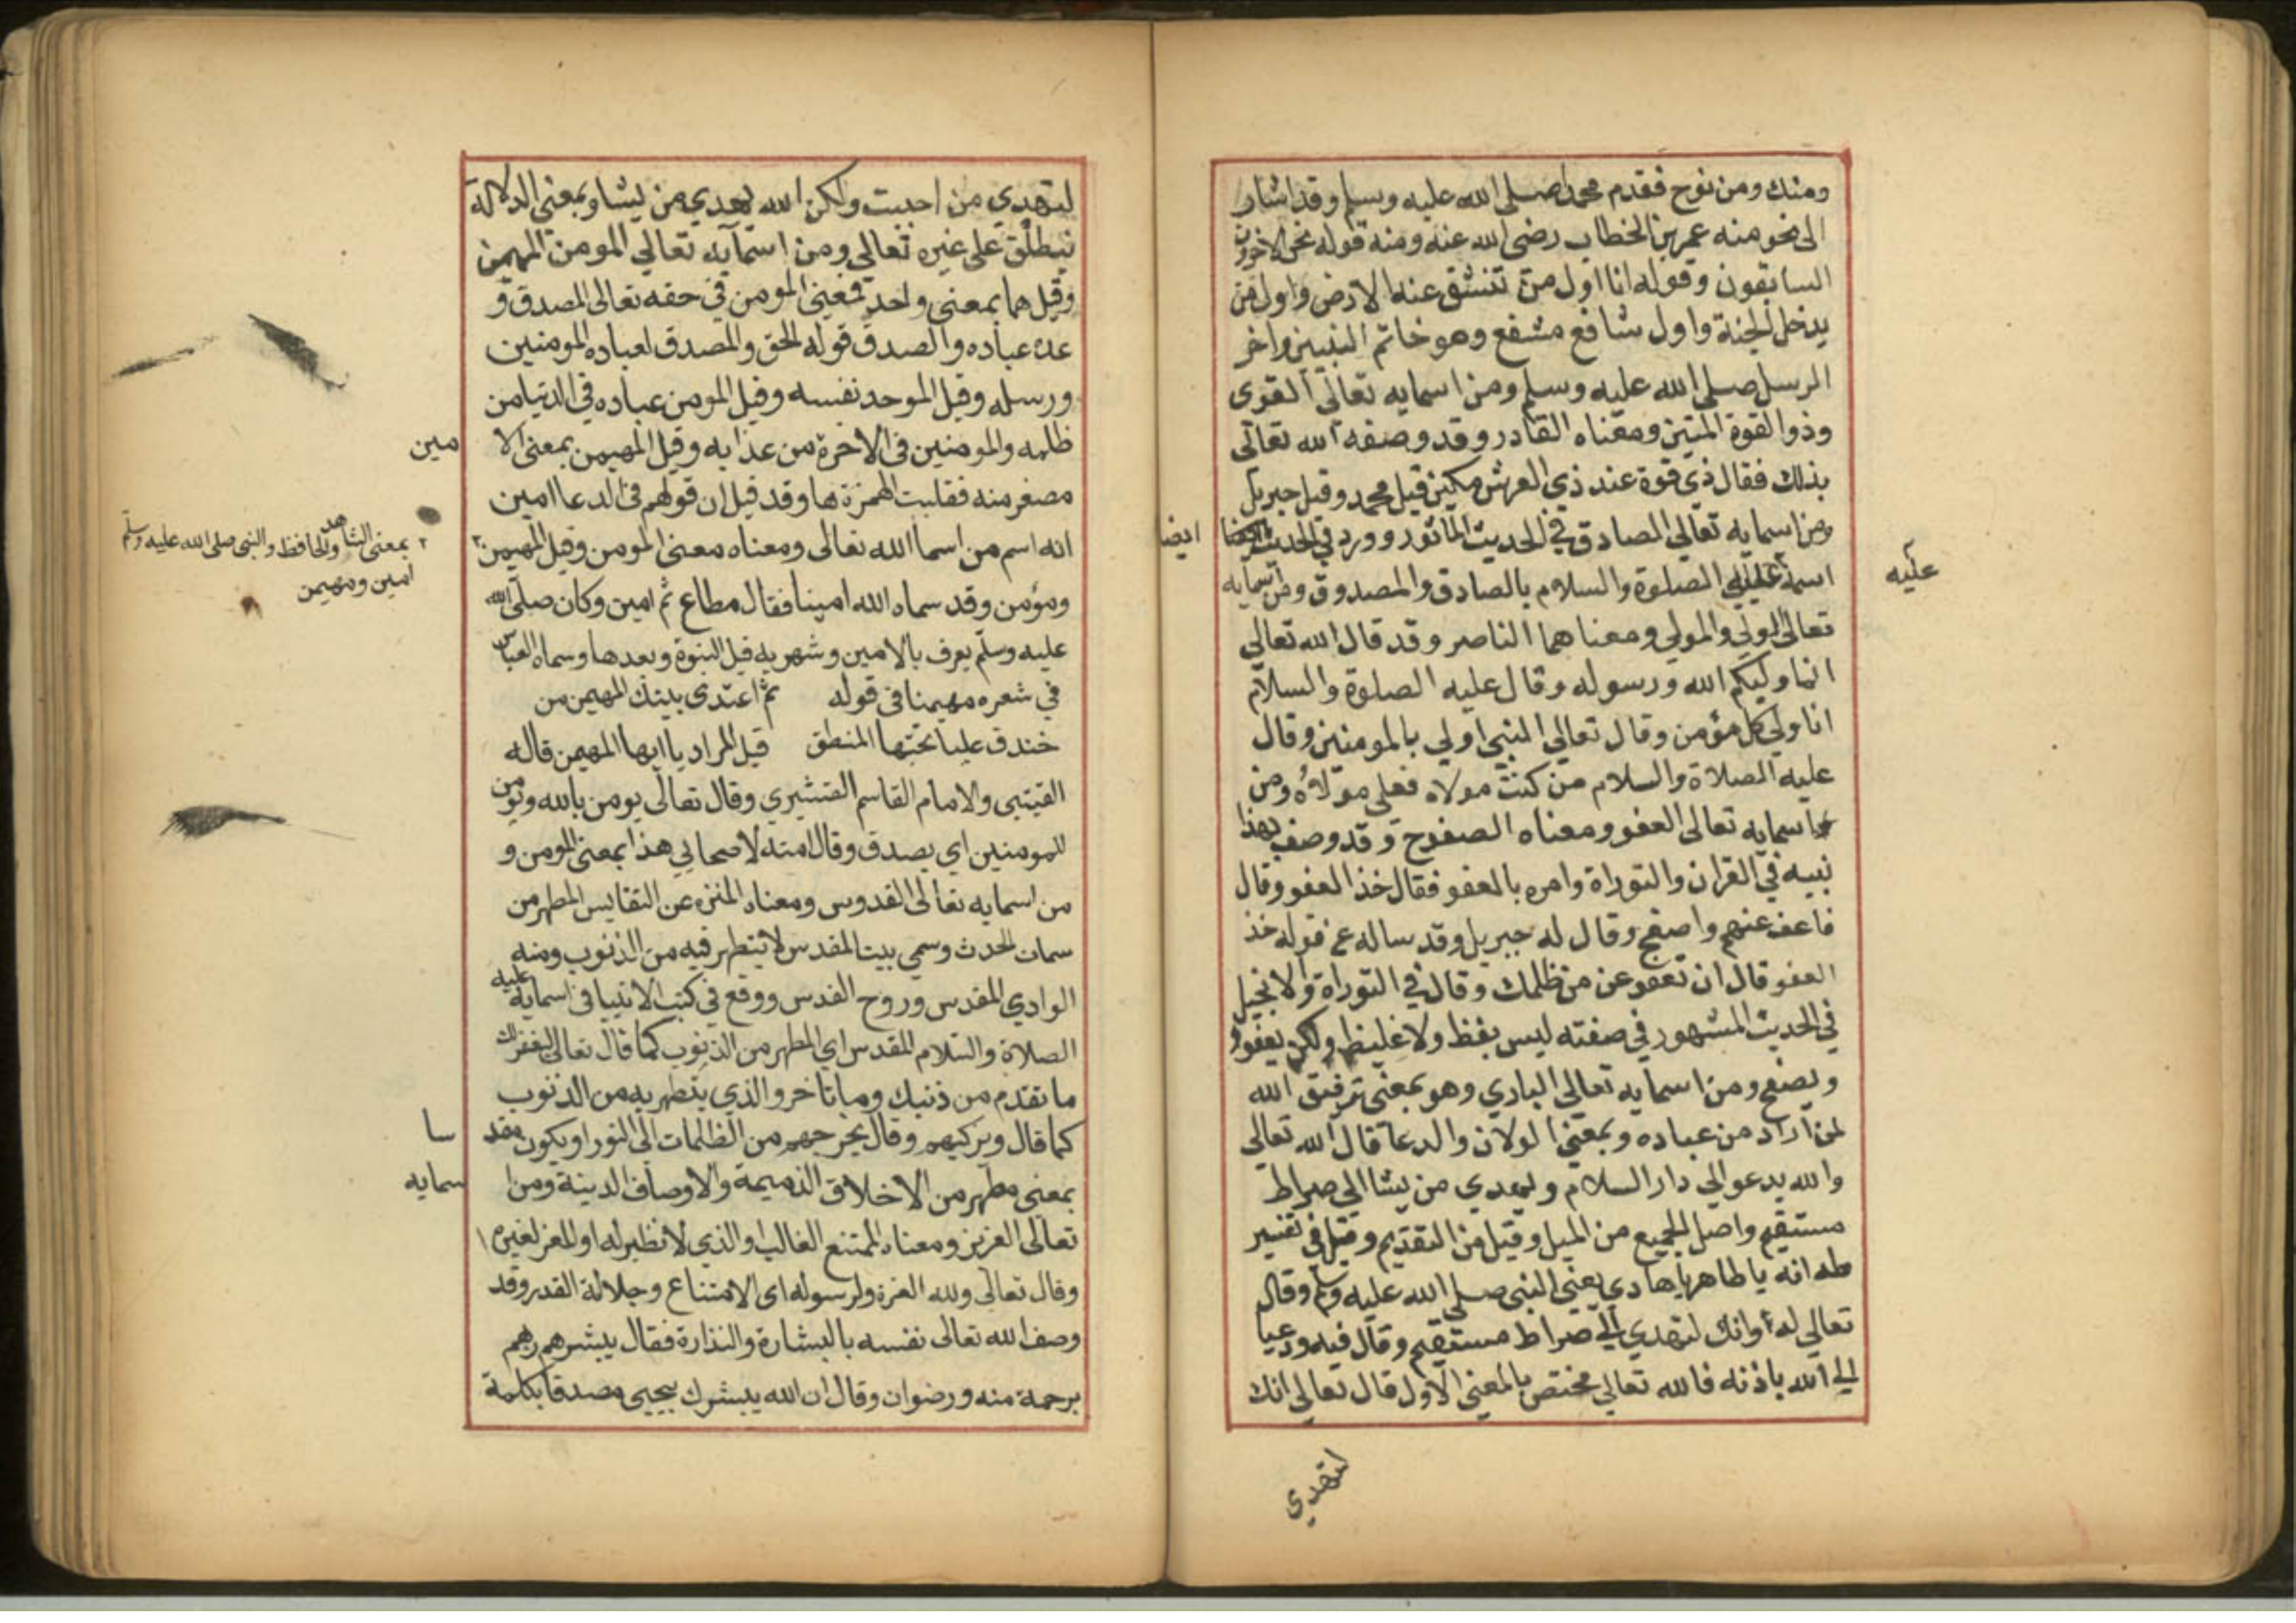 ومنك ومن نوح فقدم محمدا صلى الله عليه وسلم وقد اشار
الى نحو منه عمر بن الخطاب رضى الله عنه ومنه قوله نحن الاخرون
السابقون وقوله انا اول من تنشق عنه الارض واول من
يدخل الجنة واول شافع مشفع وهو خاتم النبيين واخر
الرسل صلى الله عليه وسلم ومن اسمايه تعالى القوى
وذو القوة المتين ومعناه القادر وقد وصفه الله تعالى
بذلك فقال ذي قوة عند ذي العرش مكين قيل محمد وقيل جبريل
ومن اسمايه تعالى الصادق في الحديث الماثور وورد في الحديث
ايضا
اسمه عليه الصلوة والسلام بالصادق والمصدوق ومن اسمايه
عليه
تعالى الولي والمولي ومعناهما الناصر وقد قال الله تعالى
انما وليكم الله ورسوله وقال عليه الصلوة والسلام
انا ولي كل مؤمن وقال تعالي النبي اولي بالمومنين وقال
عليه الصلاة والسلام من كنت مولاه فعلي مولاه ومن
اسمايه تعالى العفو ومعناه الصفوح وقد وصف بهذا
نبيه في القران والتوراة وامره بالعفو فقال خذ العفو وقال
فاعف عنهم واصفح وقال له جبريل وقد ساله عن قوله خذ
العفو قال ان تعفو عن من ظلمك وقال في التوراة والانجيل
في الحديث المشهور في صفته ليس بفظ ولا غليظ ولكن يعفو
ويصفح ومن اسمايه تعالى الهادي وهو بمعنى توفيق الله
لمن اراد من عباده وبمعنى الدلالة والدعا قال الله تعالى
والله يدعو الي دار السلام ويهدي من يشا الي صراط
مستقيم واصل الجميع من الميل وقيل من التقديم وقيل في تفسير
طه انه يا طاهر يا هادي يعني النبي صلى الله عليه وسلم وقال
تعالي له وانك لتهدي الي صراط مستقيم وقال فيه وداعيا
الي الله باذنه فالله تعالي مختص بالمعنى الاول قال تعالى انك
لتهدي
لتهدي من احببت ولكن الله يهدي من يشا وبمعنى الدلالة
تنطلق على غيره تعالى ومن اسمآيه تعالي المومن المهيمن
وقيل هما بمعنى واحد فمعنى المومن في حقه تعالى المصدق و
عده عباده والصدق قوله الحق والمصدق لعباده المومنين
ورسله وقيل الموحد نفسه وقيل المومن عباده في الدنيا من
ظلمه والمومنين في الاخرة من عذابه وقيل المهيمن بمعنى الا
مين
مصغر منه فقلبت الهمزة ها وقد قيل ان قولهم في الدعا امين
انه اسم من اسما الله تعالى ومعناه معنى المومن وقيل المهيمن ٢
٢ بمعنى الشاهد والحافظ والنبى صلى الله عليه وسلم
امين ومهيمن
ومؤمن وقد سماه الله امينا فقال مطاع ثم امين وكان صلى الله
عليه وسلم يعرف بالامين وشهر به قبل النبوة وبعدها وسماه العباس
في شعره مهيمنا في قوله ثم اغتدى بيتك المهيمن من
خندف عليا تحتها المنطق قيل المراد يا ايها المهيمن قاله
القيتبي والامام القاسم القشيري وقال تعالى يومن بالله ويومن
للمومنين اي يصدق وقال امنه لاصحابي هذا بمعنى المومن و
من اسمايه تعالى القدوس ومعناه المنزه عن النقايس المطهر من
سمات الحدث وسمي بيت المقدس لانه يتطهر فيه من الذنوب ومنه
الوادي المقدس وروح القدس ووقع في كتب الانبيا في اسمايه عليه
الصلاة والسلام المقدس اي المطهر من الذنوب كما قال تعالى ليغفر لك
ما تقدم من ذنبك وما تاخر والذي يتطهر به من الذنوب
كما قال ويزكيهم وقال يخرجهم من الظلمات الى النور او يكون مقد
سا
بمعنى مطهر من الاخلاق الذميمة والاوصاف الدينة ومن ا
سمايه
تعالى العزيز ومعناه الممتنع الغالب او الذي لا نظير له او المعز لغيره
وقال تعالى ولله العزة ولرسوله اى الامتناع وجلالة القدر وقد
وصف الله تعالى نفسه بالبشارة والنذارة فقال يبشرهم ربهم
برحمة منه ورضوان وقال ان الله يبشرك بيحيى مصدقا بكلمة